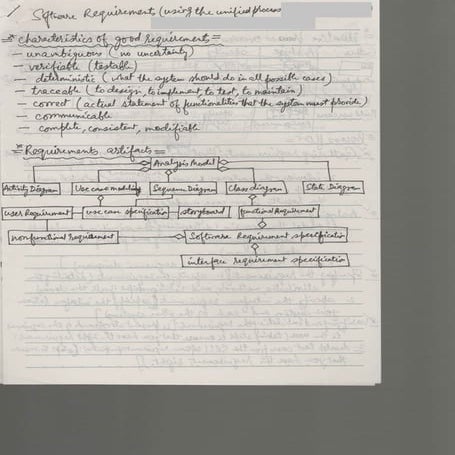 Software Requirements (using the unified process
* characteristics of good requirements =
– unambiguous (no uncertainty)
– verifiable (testable)
– deterministic (what the system should do in all possible cases)
– traceable (to design, to implement, to test, to maintain)
– correct (actual statement of functionalities that the system must provide)
– communicable
– complete, consistent, modifiable
* Requirements artifacts =
Analysis Model
Activity Diagram Use case modeling Sequence Diagram Class diagram State Diagram
user Requirement use case specification storyboard functional Requirement
nonfunctional Requirement Software Requirement specification
interface requirement specification